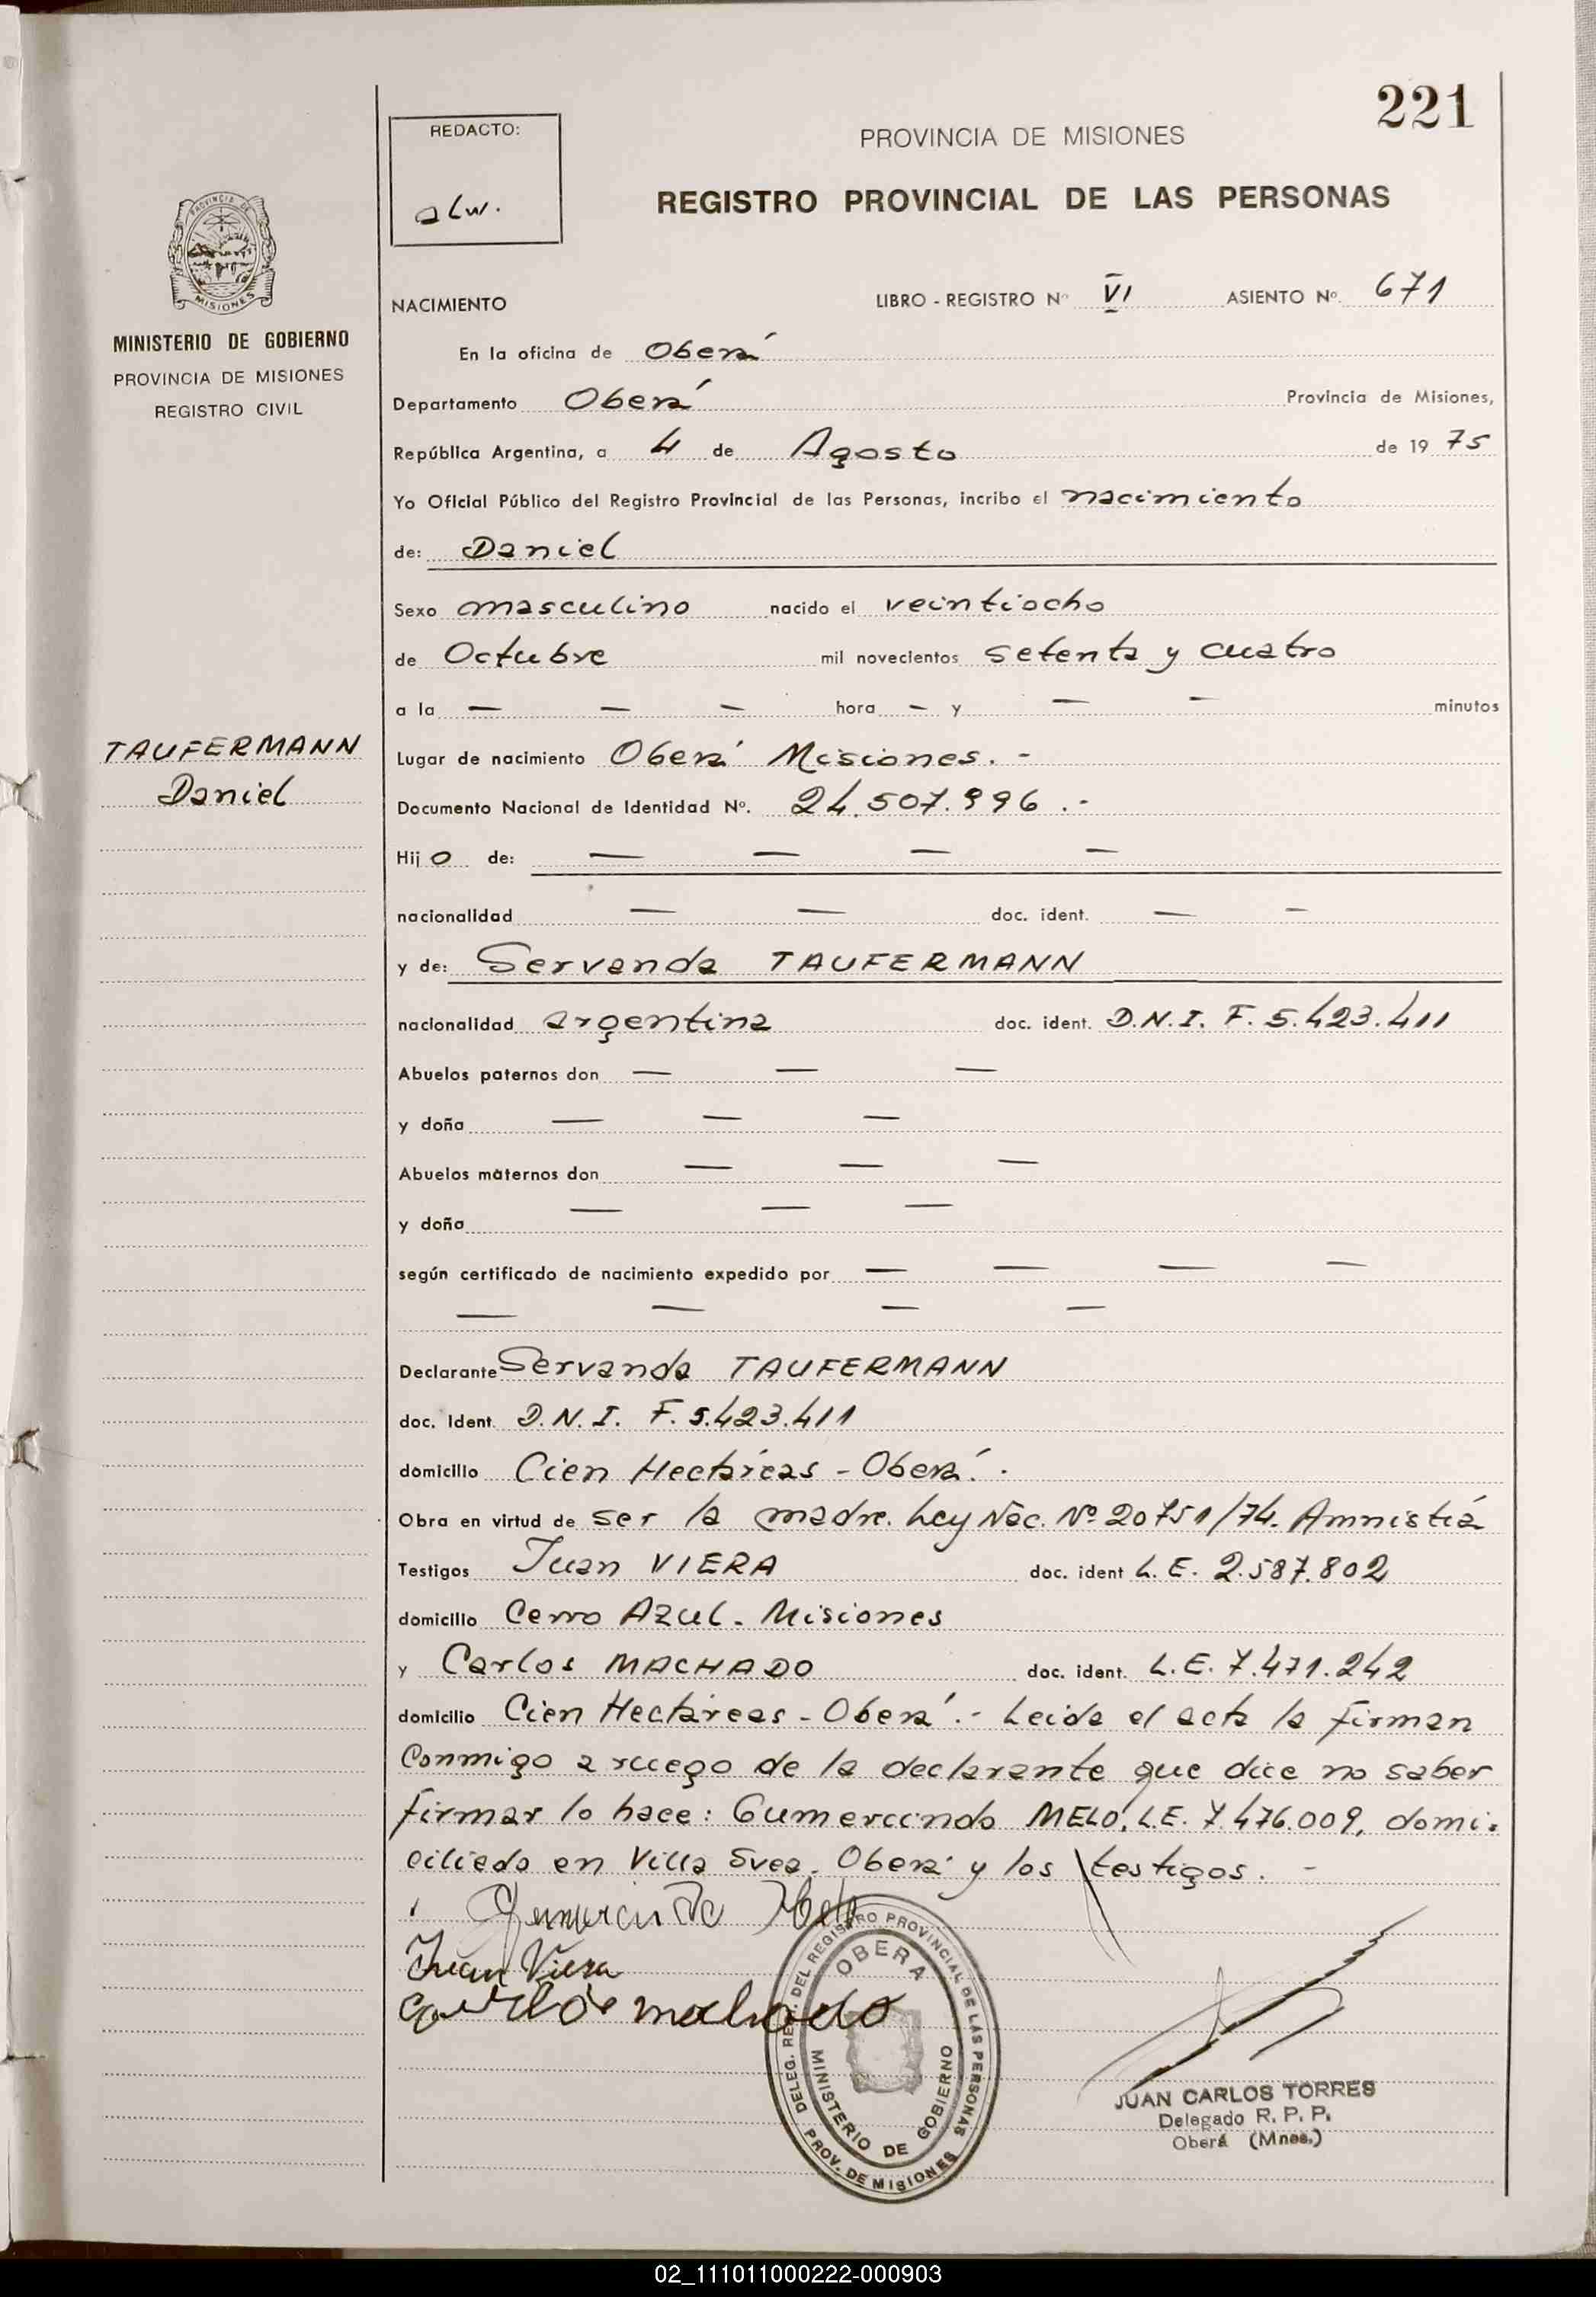 221
REDACTO:
alw.
PROVINCIA DE MISIONES
REGISTRO PROVINCIAL DE LAS PERSONAS
PROVINCIA DE
MISIONES
MINISTERIO DE GOBIERNO
PROVINCIA DE MISIONES
REGISTRO CIVIL
NACIMIENTO LIBRO - REGISTRO Nº VI ASIENTO Nº 671
En la oficina de Oberá
Departamento Oberá Provincia de Misiones,
República Argentina, a 4 de Agosto de 19 75
Yo Oficial Público del Registro Provincial de las Personas, incribo el nacimiento
de: Daniel
Sexo masculino nacido el veintiocho
de Octubre mil novecientos setenta y cuatro
a la — — — hora — y — — minutos
TAUFERMANN
Daniel
Lugar de nacimiento Oberá Misiones. -
Documento Nacional de Identidad Nº. 24.507.996 .-
Hijo de: — — — —
nacionalidad — — doc. ident. — —
y de: Servanda TAUFERMANN
nacionalidad argentina doc. ident. D.N.I. F. 5.423.411
Abuelos paternos don — — —
y doña — — —
Abuelos maternos don — — —
y doña — — —
según certificado de nacimiento expedido por — — — —
— — — —
Declarante Servanda TAUFERMANN
doc. Ident. D.N.I. F. 5.423.411
domicilio Cien Hectáreas - Oberá. .
Obra en virtud de ser la madre. Ley Nac. Nº 20751/74. Amnistiá
Testigos Juan VIERA doc. ident L.E. 2.587.802
domicilio Cerro Azul. Misiones
y Carlos MACHADO doc. ident. L.E. 7.471.242
domicilio Cien Hectáreas - Oberá.- Leida el acta la firman
Conmigo a ruego de la declarante que dice no saber
firmar lo hace: Gumercindo MELO, L.E. 7.476.009, domi-
ciliado en Villa Svea. Oberá y los testigos. -
Gumercindo Melo
Juan Viera
Carlos machado
DELEG. REG. DEL REGISTRO PROVINCIAL DE LAS PERSONAS
OBERA
MINISTERIO DE GOBIERNO
PROV. DE MISIONES
JUAN CARLOS TORRES
Delegado R. P. P.
Oberá (Mnes.)
02_111011000222-000903